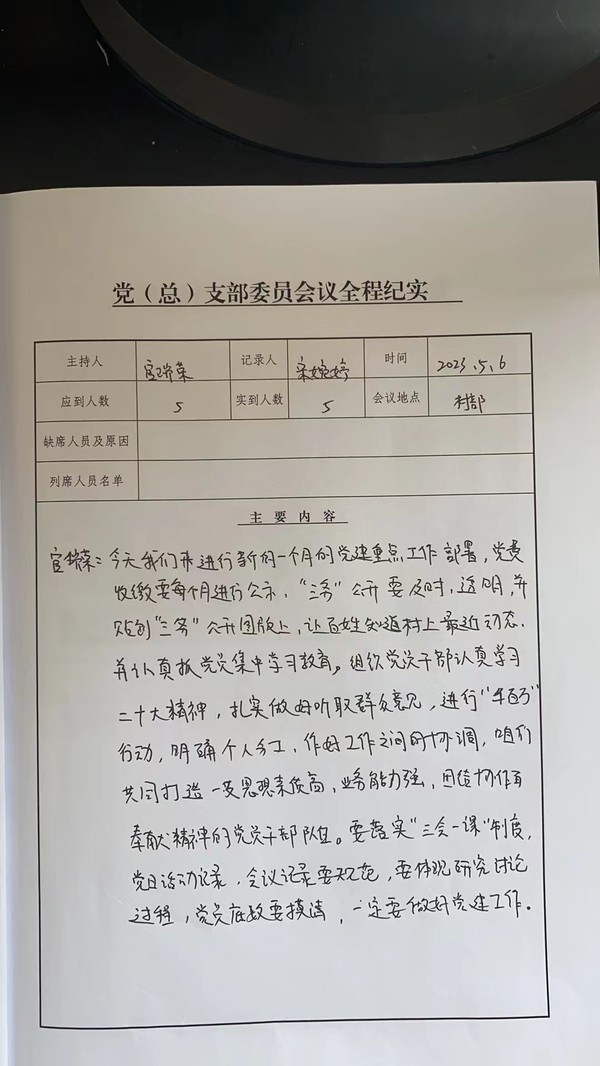 党（总）支部委员会议全程纪实
主持人 官瑞荣 记录人 宋婉婷 时间 2023.5.6
应到人数 5 实到人数 5 会议地点 村部
缺席人员及原因
列席人员名单
主要内容
官瑞荣：今天我们来进行新的一个月的党建重点工作部署，党费
收缴要每个月进行公示，“三务”公开要及时，透明，并
贴到“三务”公开团版上，让百姓知道村上最近动态。
并认真抓党员集中学习教育。组织党员干部认真学习
二十大精神，扎实做好听取群众意见，进行“
行动，明确个人分工，作好工作之间的协调，咱们
共同打造一支思想素质高，业务能力强，团结协作有
奉献精神的党员干部队伍。要落实“三会一课”制度，
党日活动记录，会议记录要规范，要体现研究讨论
过程，党员底数要摸清，一定要做好党建工作。